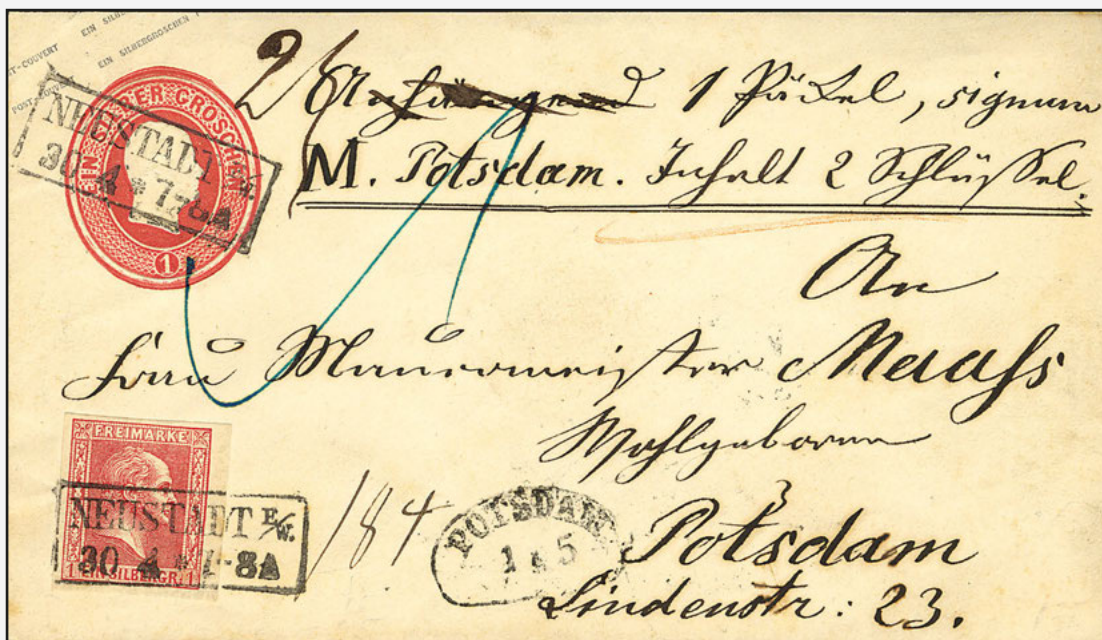 EIN SILBERGROSCHEN
POST-COUVERT EIN SILBERGROSCHEN
POST-COUVERT
EIN SILBER GROSCHEN
1
NEUSTADT E/W.
30 4 * 7-8A
2/ 1 Päckel, signum
M. Potsdam. Inhalt 2 Schlüssel.
An
Frau Maurermeister Maass
Wohlgeboren
FREIMARKE
1 EIN SILBERGR. 1
NEUSTADT E/W.
30 4 * 7-8A
184
POTSDAM
1 5
Potsdam
Lindenstr: 23.